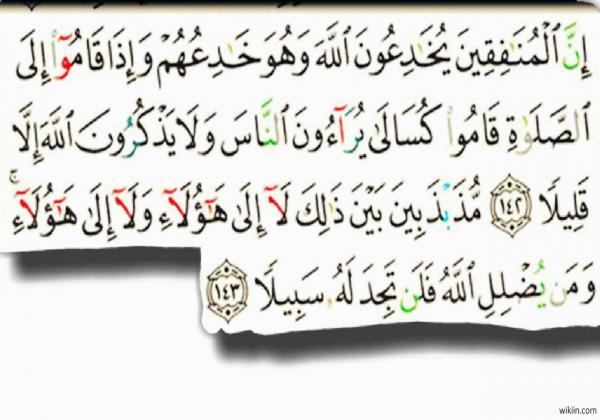 إِنَّ ٱلْمُنَٰفِقِينَ يُخَٰدِعُونَ ٱللَّهَ وَهُوَ خَٰدِعُهُمْ وَإِذَا قَامُوٓا۟ إِلَى
ٱلصَّلَوٰةِ قَامُوا۟ كُسَالَىٰ يُرَآءُونَ ٱلنَّاسَ وَلَا يَذْكُرُونَ ٱللَّهَ إِلَّا
قَلِيلًا ١٤٢ مُّذَبْذَبِينَ بَيْنَ ذَٰلِكَ لَآ إِلَىٰ هَٰٓؤُلَآءِ وَلَآ إِلَىٰ هَٰٓؤُلَآءِ ۚ
وَمَن يُضْلِلِ ٱللَّهُ فَلَن تَجِدَ لَهُۥ سَبِيلًا ١٤٣
wikiin.com